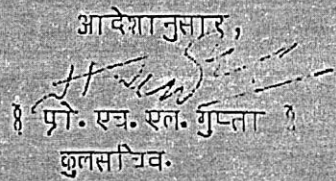 आदेशानुसार,
§ प्रो. एच. एल. गुप्ता §
कुलसचिव.